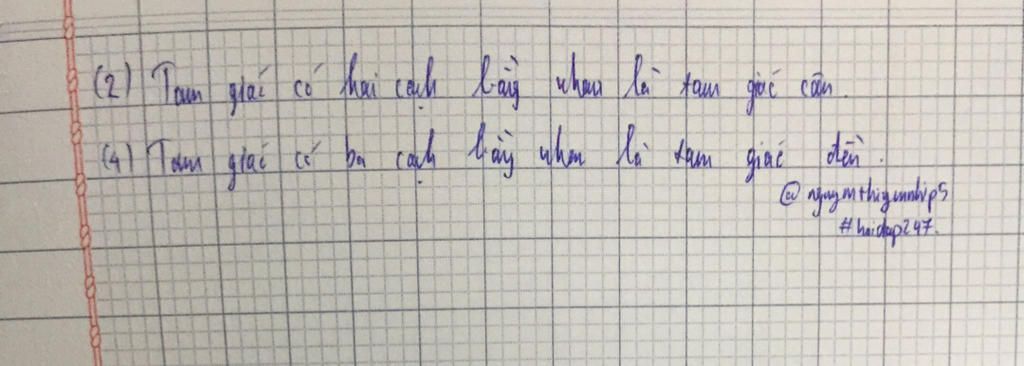 (2) Tam giác có hai cạnh bằng nhau là tam giác cân.
(4) Tam giác có ba cạnh bằng nhau là tam giác đều.
#hoidap247.